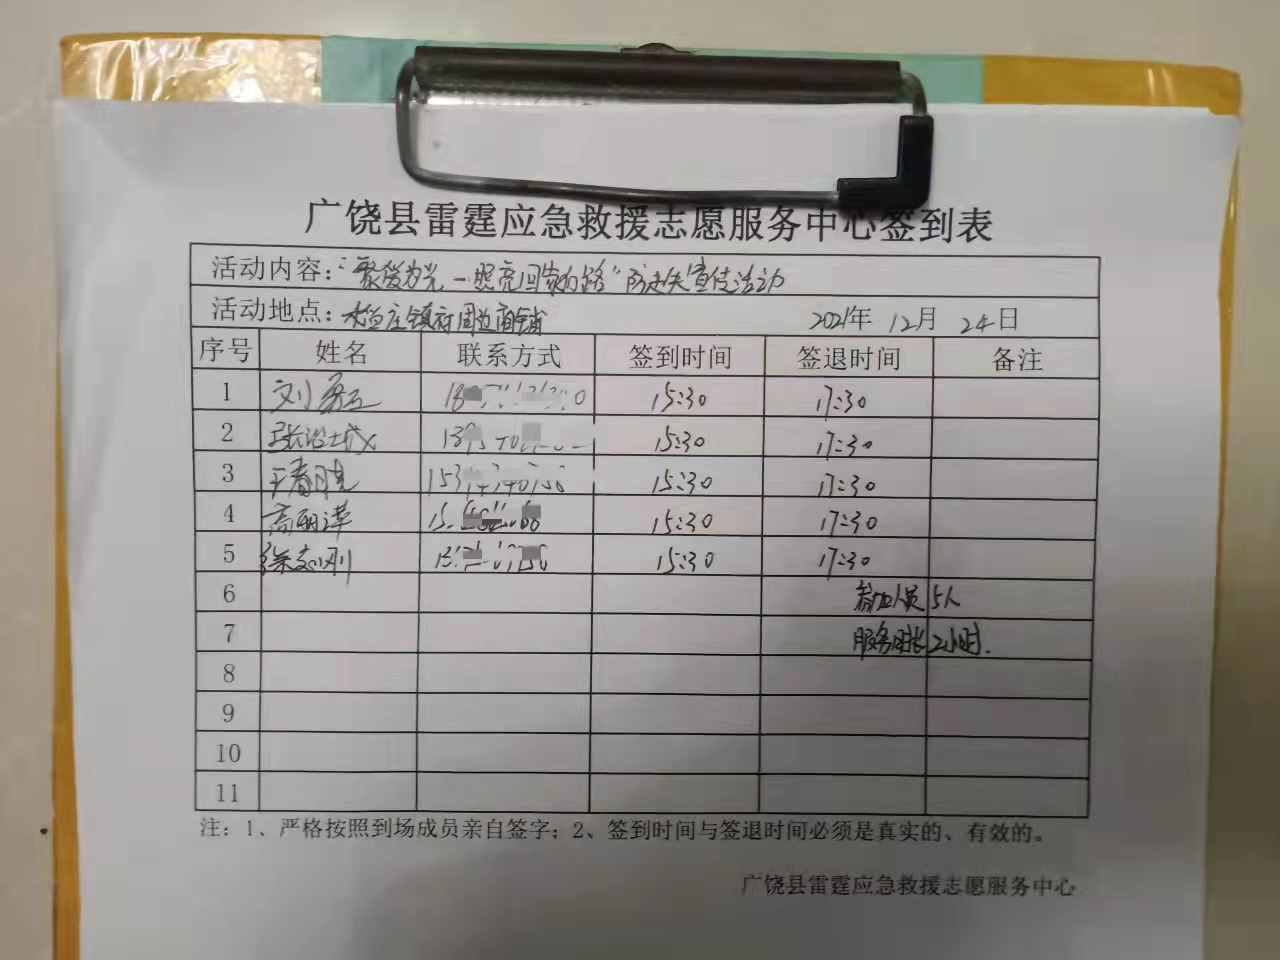 广饶县雷霆应急救援志愿服务中心签到表
活动内容：“聚爱为光－照亮回家的路”防走失宣传活动
活动地点：大码头镇府周边商铺 2021年 12月 24日
序号 姓名 联系方式 签到时间 签退时间 备注
1 15:30 17:30
2 15:30 17:30
3 王春晓 15:30 17:30
4 15:30 17:30
5 徐志刚 15:30 17:30
6 参加人员 5人
7 服务时长 2小时.
8
9
10
11
注：1、严格按照到场成员亲自签字；2、签到时间与签退时间必须是真实的、有效的。
广饶县雷霆应急救援志愿服务中心